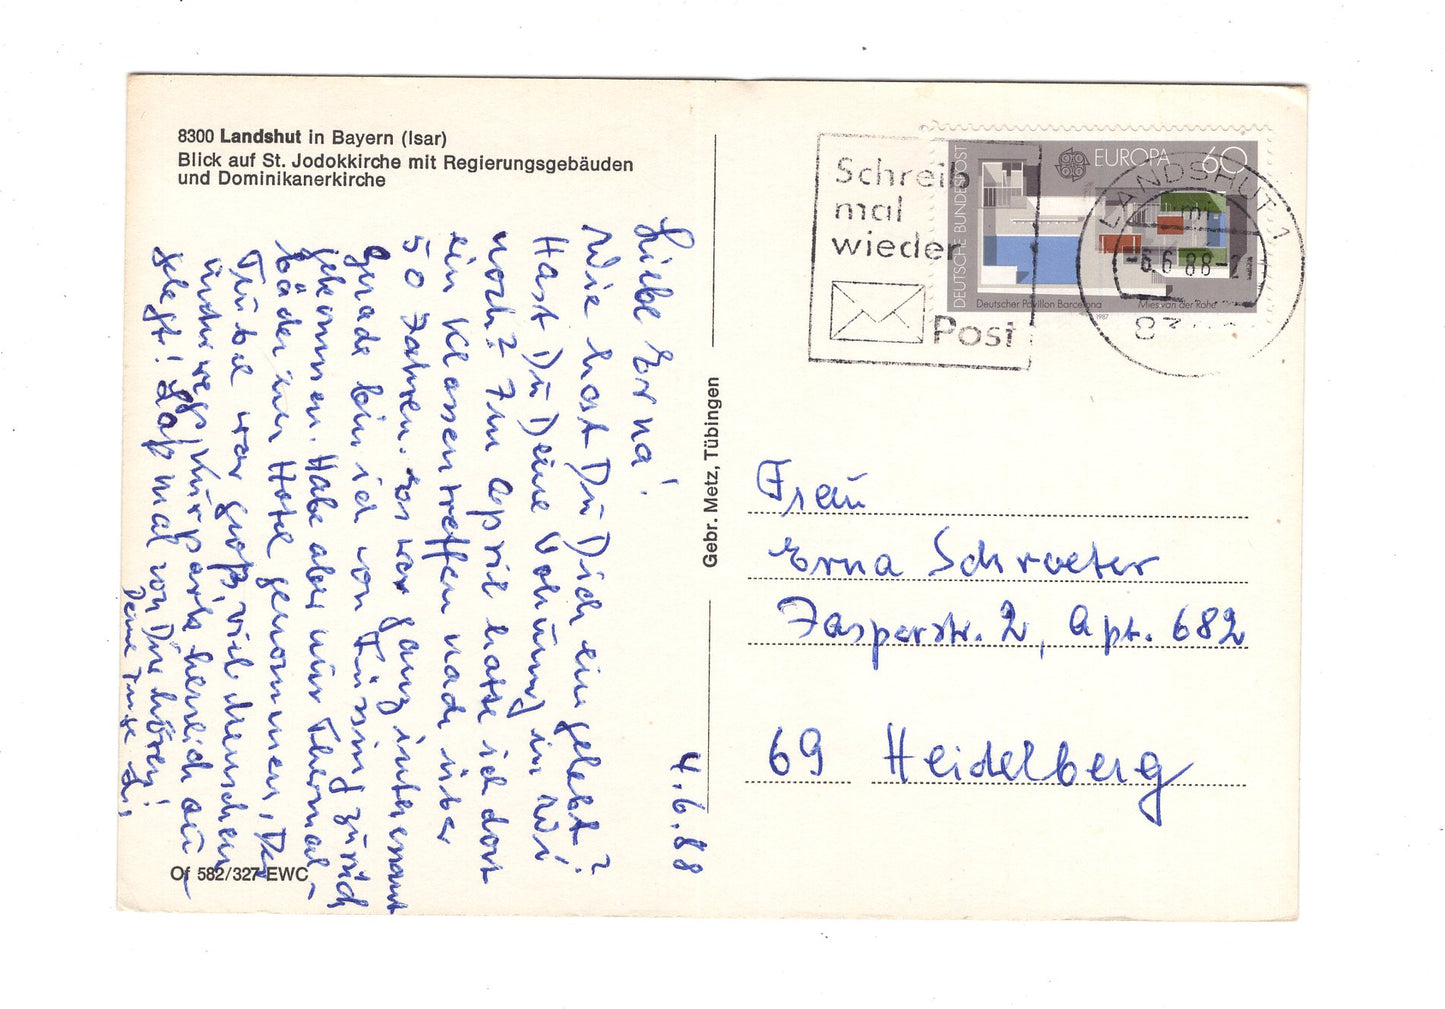 8300 Landshut in Bayern (Isar)
Blick auf St. Jodokkirche mit Regierungsgebäuden
und Dominikanerkirche
Schreib
mal
wieder
Post
DEUTSCHE BUNDESPOST
EUROPA 60
Deutscher Pavillon Barcelona Mies van der Rohe
1987
LANDSHUT 1
mi
-6.6.88-21
83
Gebr. Metz, Tübingen
4.6.88
Liebe Erna!
Wie hast Du Dich eingelebt?
Hast Du Deine Wohnung in Wi
noch? Im April hatte ich dort
ein Klassentreffen nach über
50 Jahren. Es war ganz interessant
Gerade bin ich von Füssing zurück
gekommen. Habe aber nur Thermal-
bäder im Hotel genommen, Der
Trubel war groß, viel Menschen
unterwegs, Kurpark herrlich an-
gelegt! Laß mal von Dir hören!
Deine
Frau
Erna Schroeter
Jasperstr. 2, Apt. 682
69 Heidelberg
Of 582/327 EWC